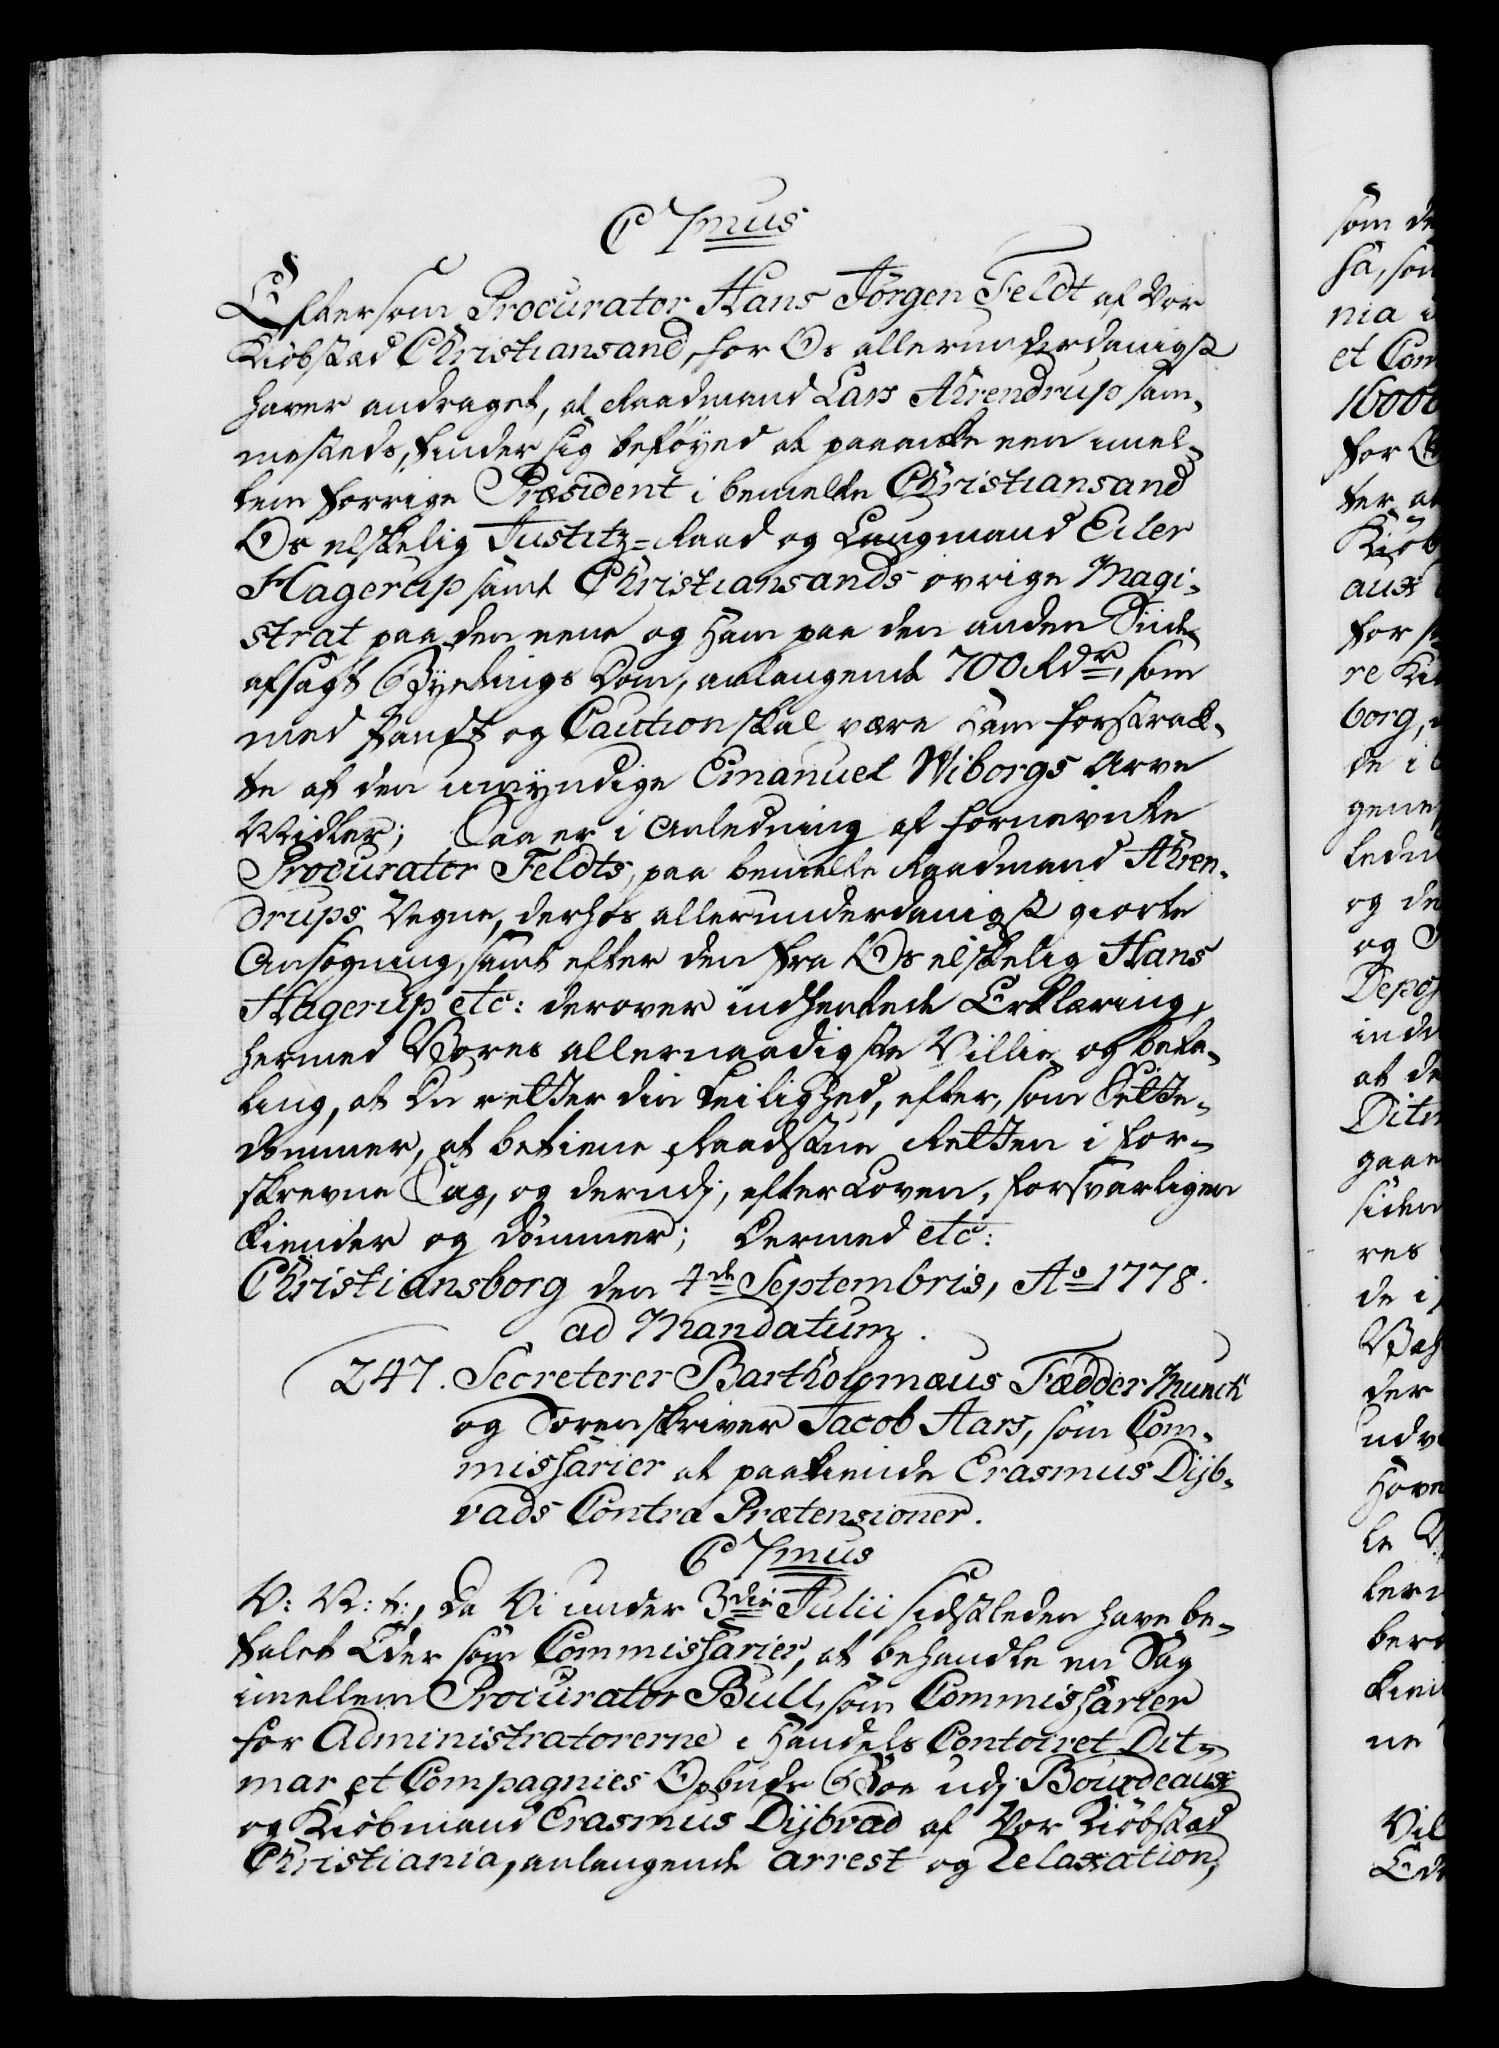 C 7mus
Eftersom Procurator Hans Jörgen Feldt af Vor
Kiöbstad Christiansand, for Os allerunderdanigst
haver andraget, at Raadmand Lars Ahrendrup sam-
mesteds, finder sig beføyed at paaanke een imel-
lem forrige Præsident i bemelte Christiansand
Os elskelig Justitz-Raad og Laugmand Eiler
Hagerup samt Christiansands øvrige Magi-
strat paa den eene og Ham paa den anden Siide
afsagt Byetings Dom, anlangende 700 Rdr, som
med Pandt og Caution skal være Ham forstrak-
te af den umyndige Emanuel Wiborgs Arve
Midler; Saa er i Anledning af fornevnte
Procurator Feldts, paa bemelte Raadmand Ahren-
drups Vegne, derhos allerunderdanigst giorte
Ansøgning, samt efter den fra Os elskelig Hans
Hagerup etc: derover indhentede Erklæring,
hermed Vores allernaadigste Villie og befa-
ling, at Du retter din leilighed, efter, som Sætte-
dommer, at betiene Raadstue Retten i for-
skrevne Sag, og derudj, efter Loven, forsvarligen
kiender og dömmer; Dermed etc:
Christiansborg den 4de Septembris, Ao 1778.
ad Mandatum.
247. Secreterer Bartholomæus Fædder Munch
og Sorenskriver Jacob Aars, som Com-
missarier at paakiende Erasmus Dijb-
vads Contra Prætensioner.
C 7mus
V: V: t:, Da Vi under 3die Julii sidstleden have be-
falet Eder som Commissarier, at behandle en Sag
imellem Procurator Bull, som Commissarier
for Administratorerne i Handels Contoiret Dit-
mar et Compagnies Opbuds Boe udj Bourdeaux
og Kiöbmand Erasmus Dijbvad af Vor Kiöbstad
Christiania, anlangende arrest og Relaxation,